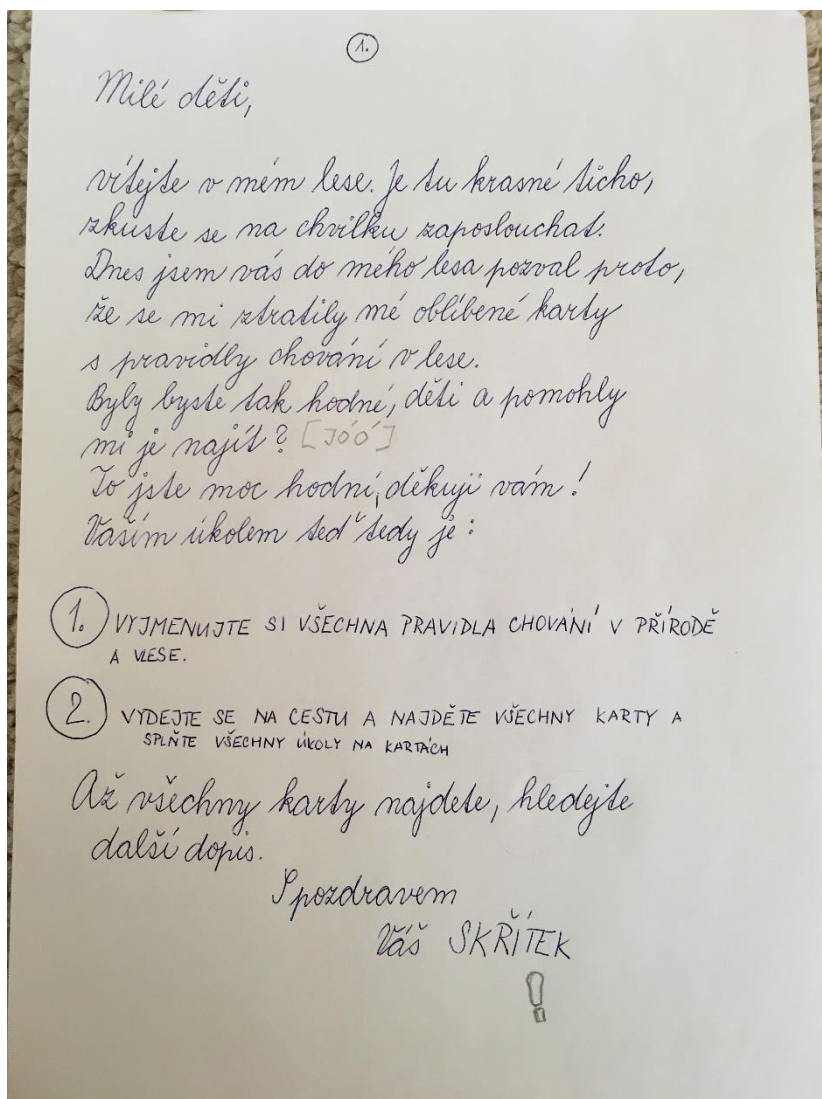 1.
Milé děti,
vítejte v mém lese. Je tu krasné ticho,
zkuste se na chvilku zaposlouchat.
Dnes jsem vás do mého lesa pozval proto,
že se mi ztratily mé oblíbené karty
s pravidly chování v lese.
Byly byste tak hodné, děti a pomohly
mi je najít? [JÓÓ]
To jste moc hodní, děkuji vám!
Vaším úkolem teď tedy je:
1. VYJMENUJTE SI VŠECHNA PRAVIDLA CHOVÁNÍ V PŘÍRODĚ
A VLESE.
2. VYDEJTE SE NA CESTU A NAJDĚTE VŠECHNY KARTY A
SPLŇTE VŠECHNY ÚKOLY NA KARTÁCH
Až všechny karty najdete, hledejte
další dopis.
S pozdravem
Váš SKŘÍTEK
!